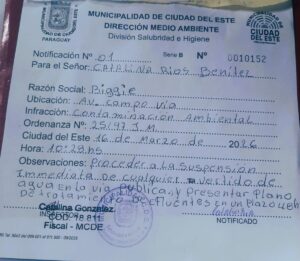 MUNICIPALIDAD DE CIUDAD DEL ESTE
DIRECCIÓN MEDIO AMBIENTE
División Salubridad e Higiene
PARAGUAY
CIUDAD
DEL ESTE
Notificación Nº 01 Serie B Nº 0010152
Para el Señor: CATALINA Rios Benitez
Razón Social: Biggie
Ubicación: Av. campo via
Infracción: Contaminacion Ambiental
Ordenanza Nº 25/97 J.M.
Ciudad del Este 16 de Marzo de 2026
Hora: 10:29hs
Observaciones: Proceder a La Suspension
Inmediata de cualquier vertido de
agua en la via Publica y Presentar Plano
De tratamiento De efluentes en un Plazo 48h
Catalina González
COD. 18.811
Fiscal - MCDE
NOTIFICADO